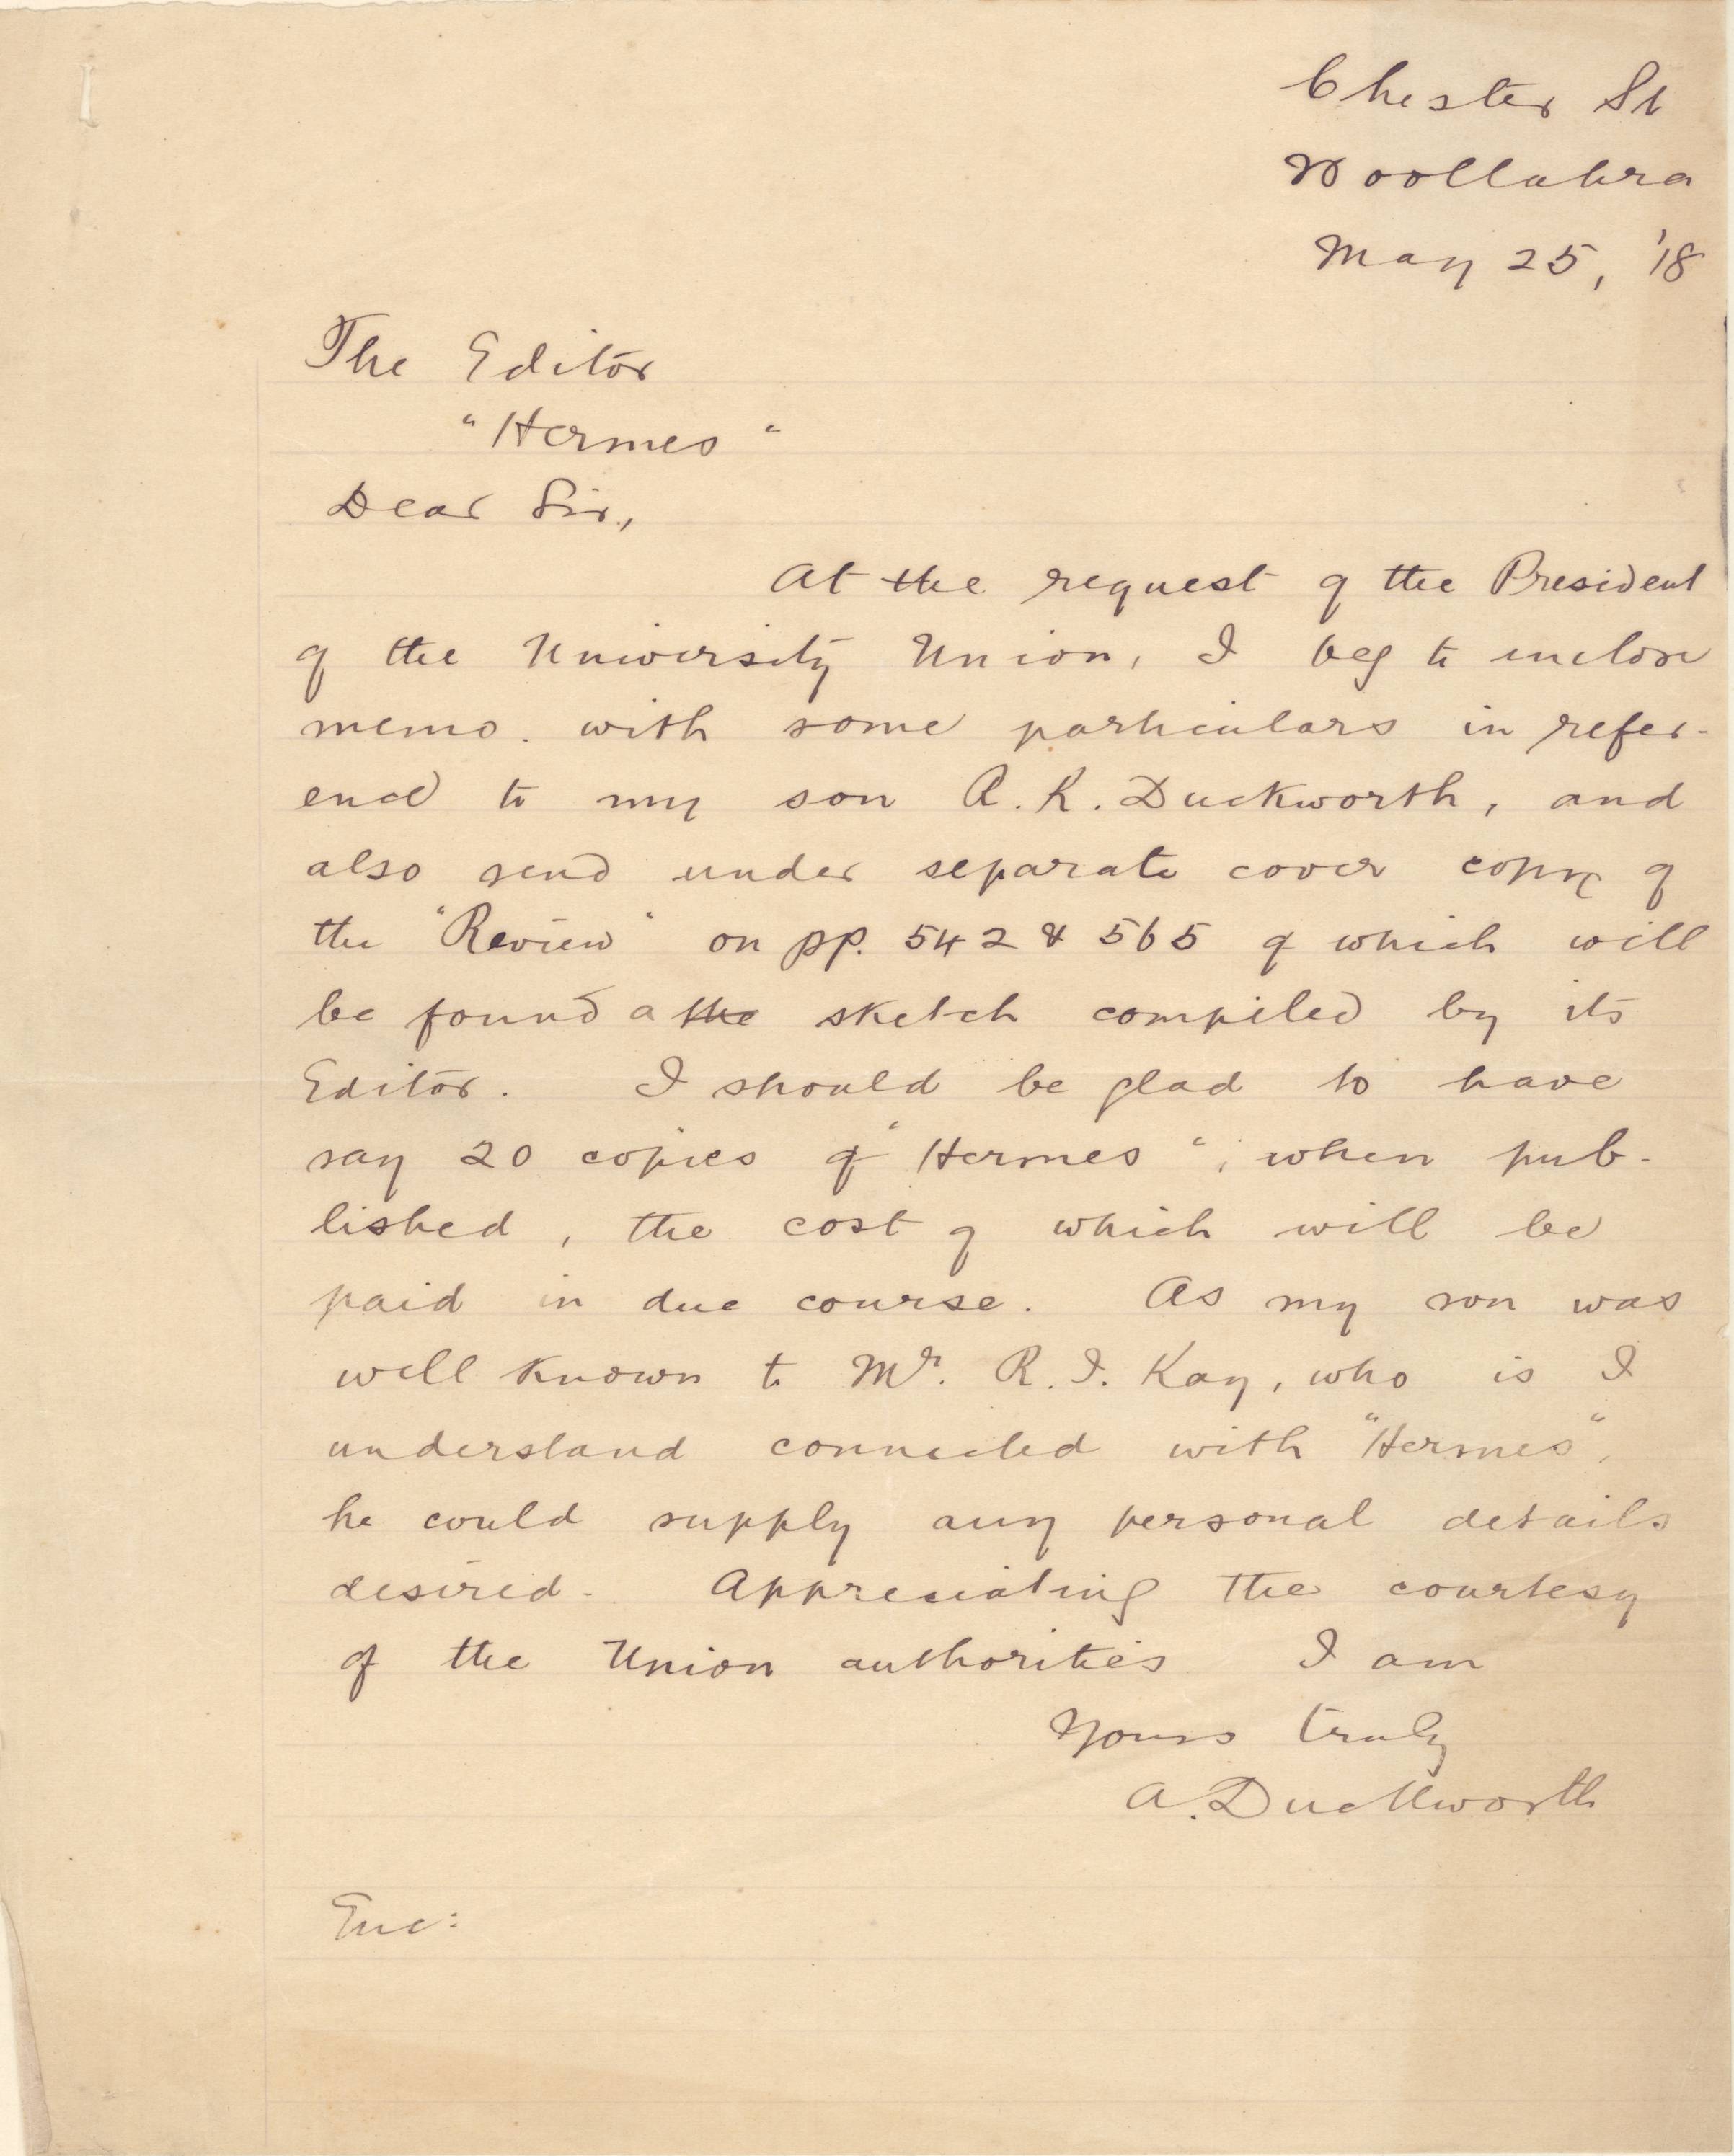 Chester St
Woollahra
May 25, '18
The Editor
"Hermes"
Dear Sir,
At the request of the President
of the University Union, I beg to inclose
memo. with some particulars in refer-
ence to my son A. K. Duckworth, and
also send under separate cover copy of
the "Review" on pp. 542 & 565 of which will
be found a the sketch compiled by its
Editor. I should be glad to have
say 20 copies of "Hermes", when pub-
lished, the cost of which will be
paid in due course. As my son was
well known to Mr. R. I. Kay, who is I
understand connected with "Hermes",
he could supply any personal details
desired. Appreciating the courtesy
of the Union authorities I am
Yours truly
A. Duckworth
Enc: